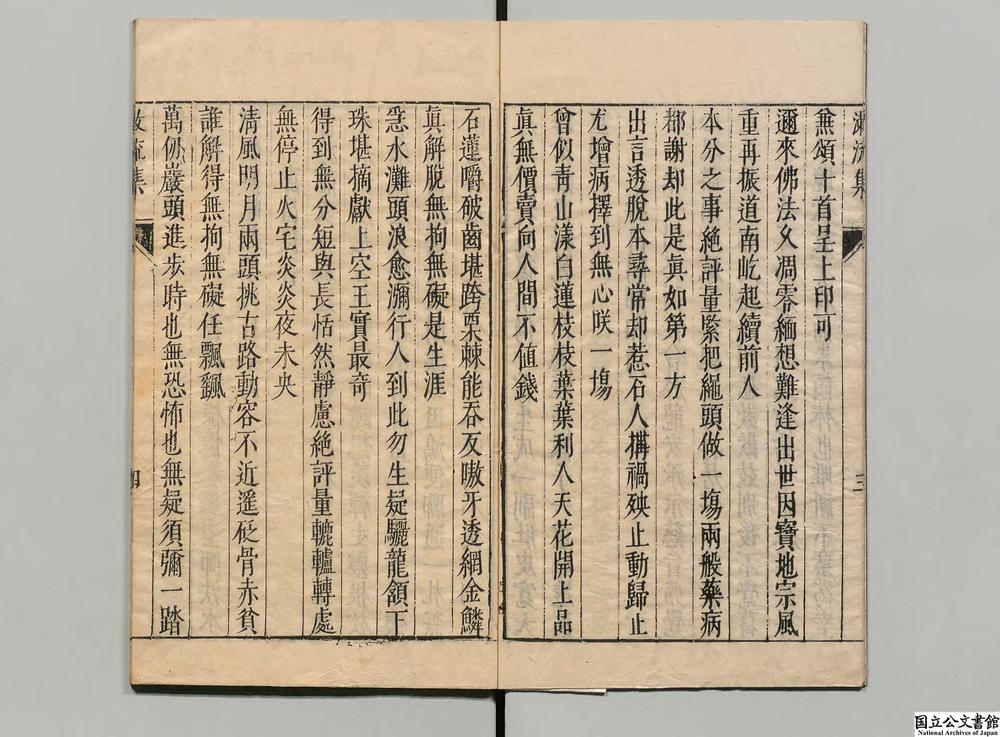 漱流集
三
無頌十首呈上印可
邇來佛法久凋零緬想難逢出世因寶地宗風
重再振道南屹起續前人
本分之事絶評量緊把繩頭做一塲兩般藥病
都謝却此是眞如第一方
出言透脫本尋常却惹石人搆禍殃止動歸止
尤增病擇到無心咲一塲
曾似靑山漾白蓮枝枝葉葉利人天花開上品
眞無價賣向人間不值錢
石蓮嚼破齒堪跨栗棘能吞反嗷牙透網金鱗
眞解脫無拘無礙是生涯
急水灘頭浪愈瀰行人到此勿生疑驪龍頷下
珠堪摘獻上空王實最竒
得到無分短與長恬然靜慮絶評量轆轤轉處
無停止火宅炎炎夜未央
淸風明月兩頭挑古路動容不近遥砭骨赤貧
誰解得無拘無礙任飄飄
萬仞巖頭進步時也無恐怖也無疑須彌一踏
漱流集
四
国立公文書館
National Archives of Japan